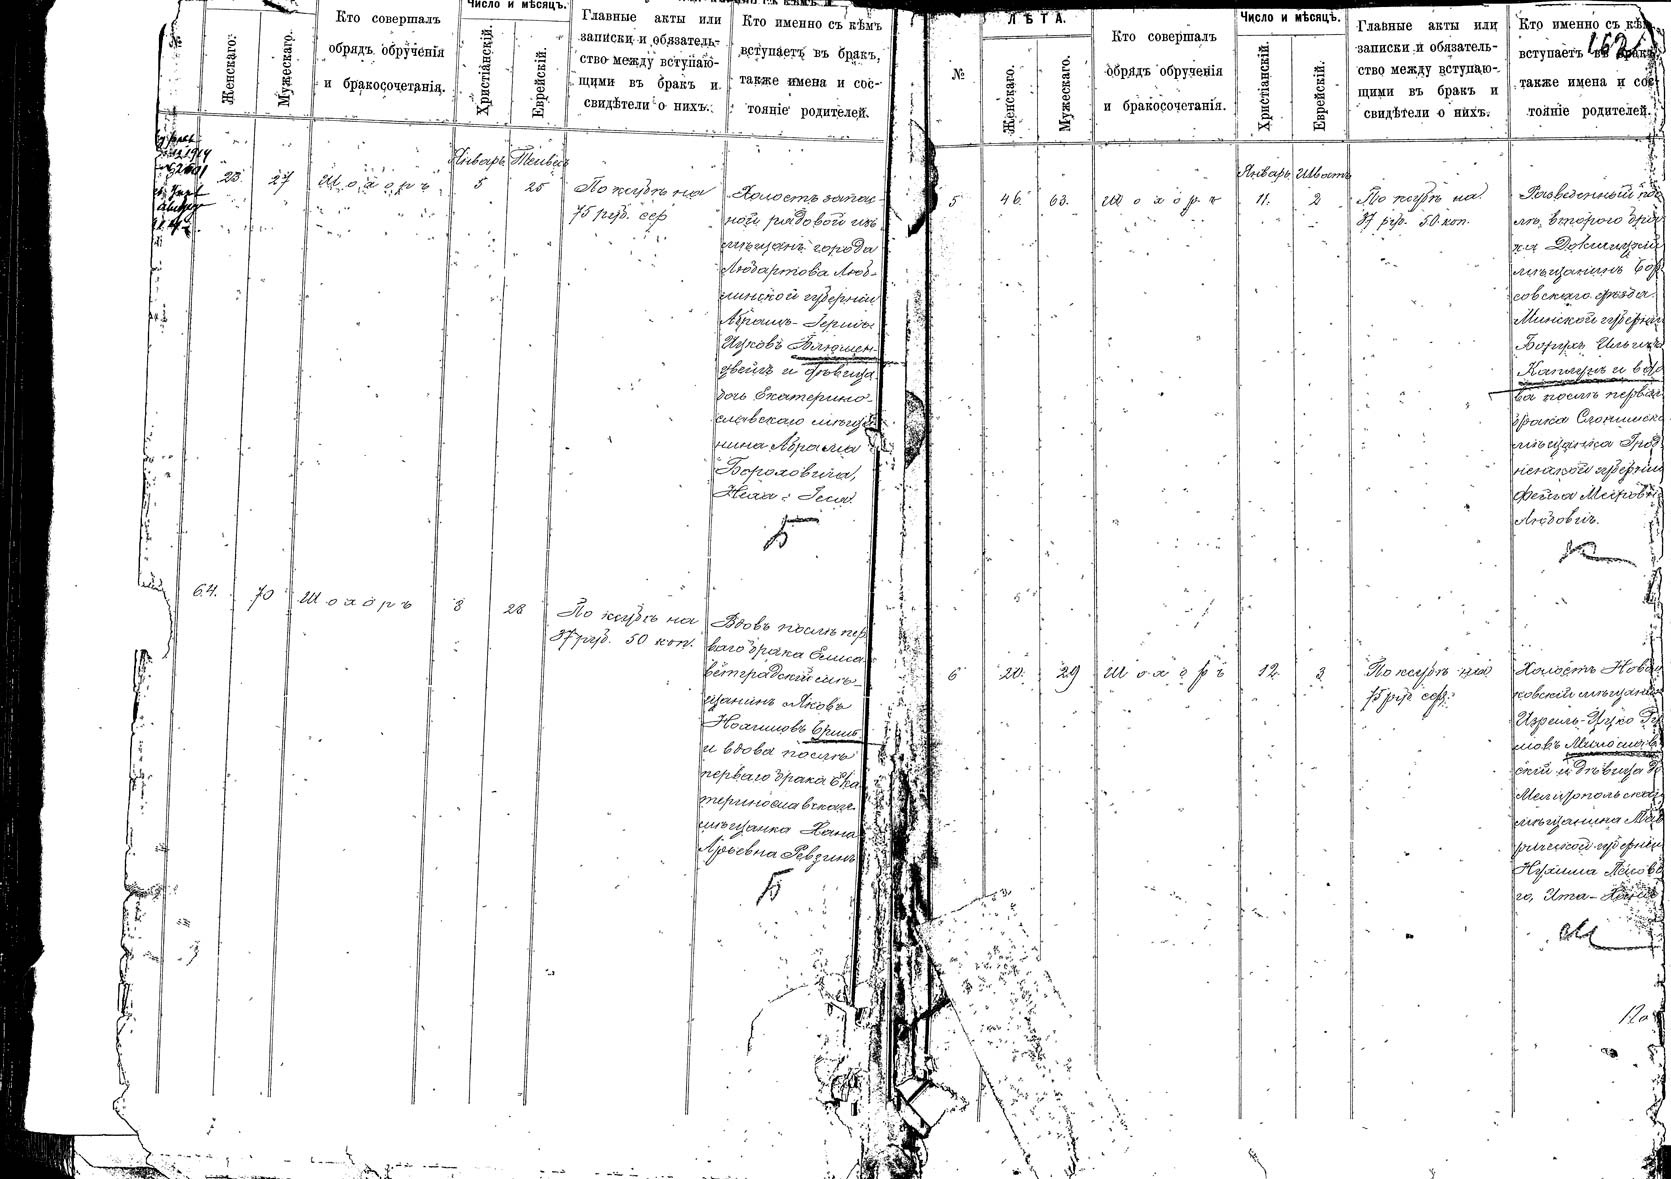 Число и мѣсяцъ.
№
Женскаго.
Мужескаго.
Кто совершалъ
обрядъ обрученія
и бракосочетанія.
Христіанскій.
Еврейскій.
Главные акты или
записки и обязатель-
ство между вступаю-
щими въ бракъ и
свидѣтели о нихъ.
Кто именно съ кѣмъ
вступаетъ въ бракъ,
также имена и сос-
тояніе родителей.
1914
23.
27
Шохоръ
Январь
5
Тейвесъ
25
По ксубѣ на
75 руб. сер
Холостъ запас-
ной рядовой изъ
мѣщанъ города
Любартова Люб-
линской губерніи
Абрамъ-Гершъ
Ицковъ Блюмен-
цвейгъ и дѣвица
дочь Екатерино-
славскаго мѣща
нина Абрама
Бероховича,
Неха-Геся.
Б
64.
70
Шохоръ
8
28
По ксубѣ на
37 руб. 50 коп.
Вдовъ послѣ пер
ваго брака Елиса
ветградскій мѣ-
щанинъ Яковъ
и вдова послѣ
перваго брака Ека
теринославская
мѣщанка Хана
Арьевна Ревзинъ
Б
ЛѢТА.
Число и мѣсяцъ.
162
№
Женскаго.
Мужескаго.
Кто совершалъ
обрядъ обрученія
и бракосочетанія.
Христіанскій.
Еврейскій.
Главные акты или
записки и обязатель-
ство между вступаю-
щими въ бракъ и
свидѣтели о нихъ.
Кто именно съ кѣм
вступаетъ въ бракъ,
также имена и сос-
тояніе родителей.
5
46.
63.
Шохоръ
Январь
11.
Шватъ
2
По ксубѣ на
37 руб. 50 коп.
Разведенный пос
лѣ второго бра
ка Докшицкій
мѣщанинъ Бор
совскаго уѣзда
Минской губерніи
Борухъ
Капланъ и вдо
ва послѣ перваго
брака Слонимска
мѣщанка Грод
ненской губерніи
Фейга Меировн
Любовичъ.
К
6
20.
29
Шохоръ
12
3
По ксубѣ на
75 руб. сер.
Холостъ
ковскій мѣщанин
Израиль-Ицко
мовъ Милослав
скій и дѣвица до
Мелитопольскаг
мѣщанина Тав
рической губерніи
Нухима
го, Ита-Хана
М